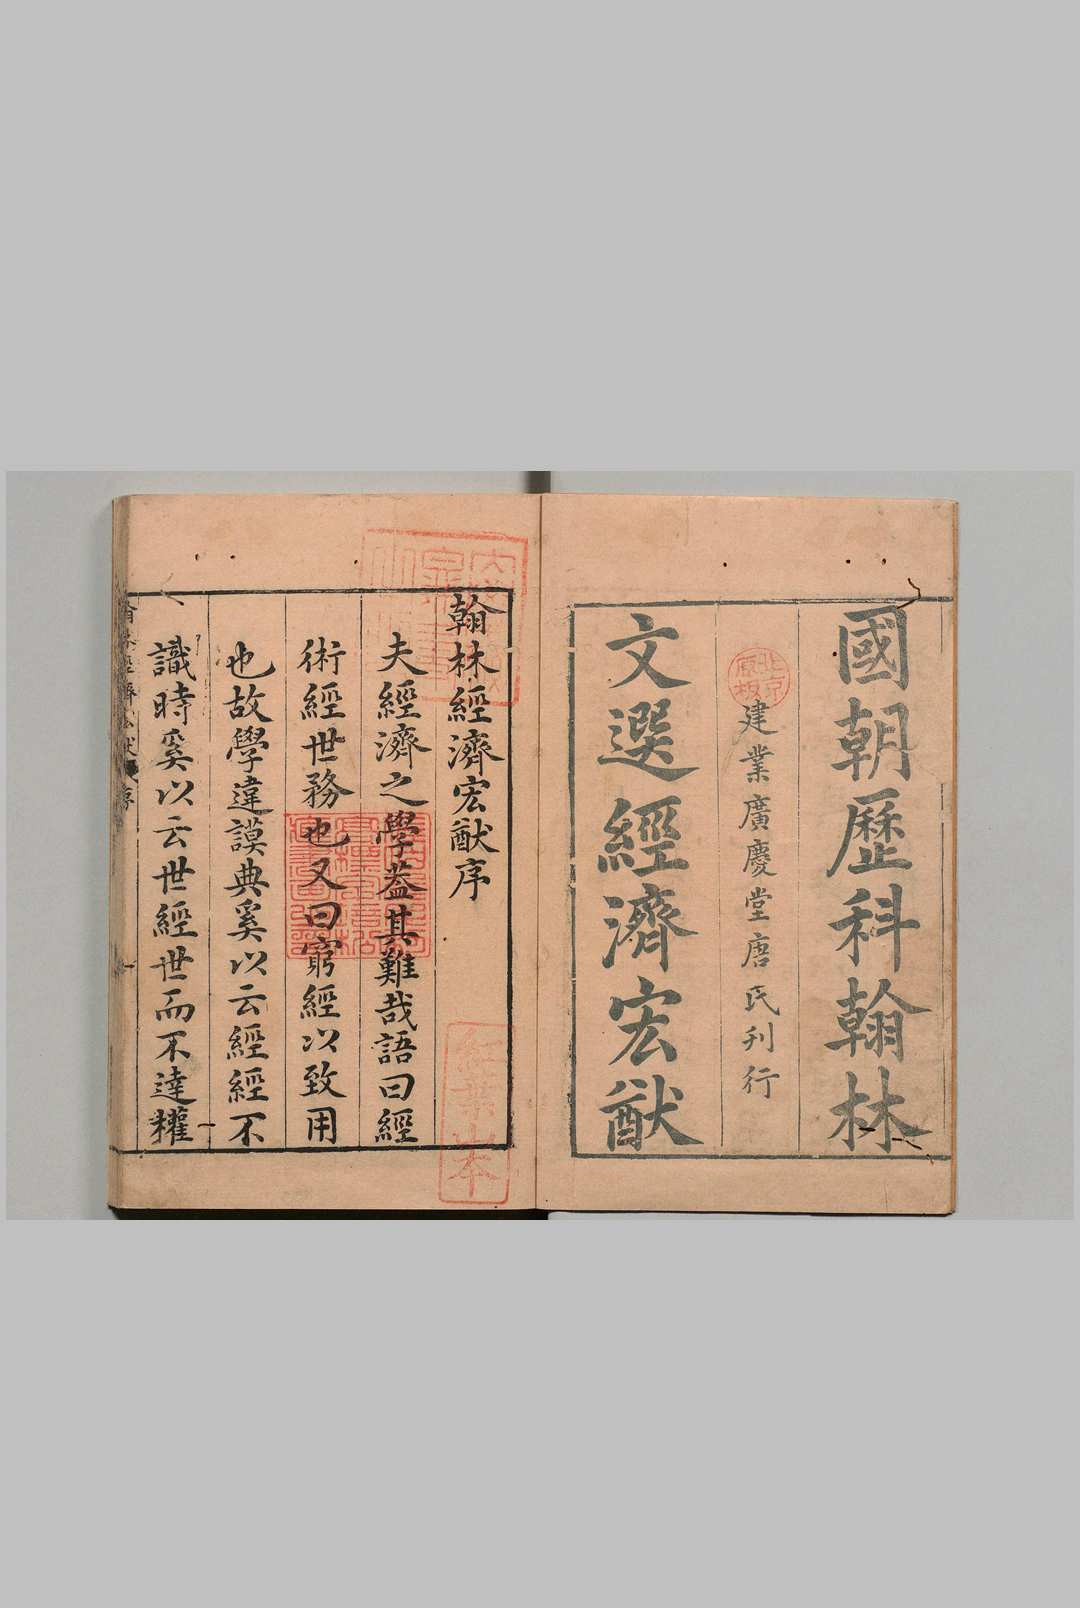 國朝歷科翰林
北京原板
建業廣慶堂唐氏刊行
文選經濟宏猷
翰林經濟宏猷序
夫經濟之學蓋其難哉語曰經
術經世務也又曰窮經以致用
也故學違謨典奚以云經經不
識時奚以云世經世而不達權
紅葉山本